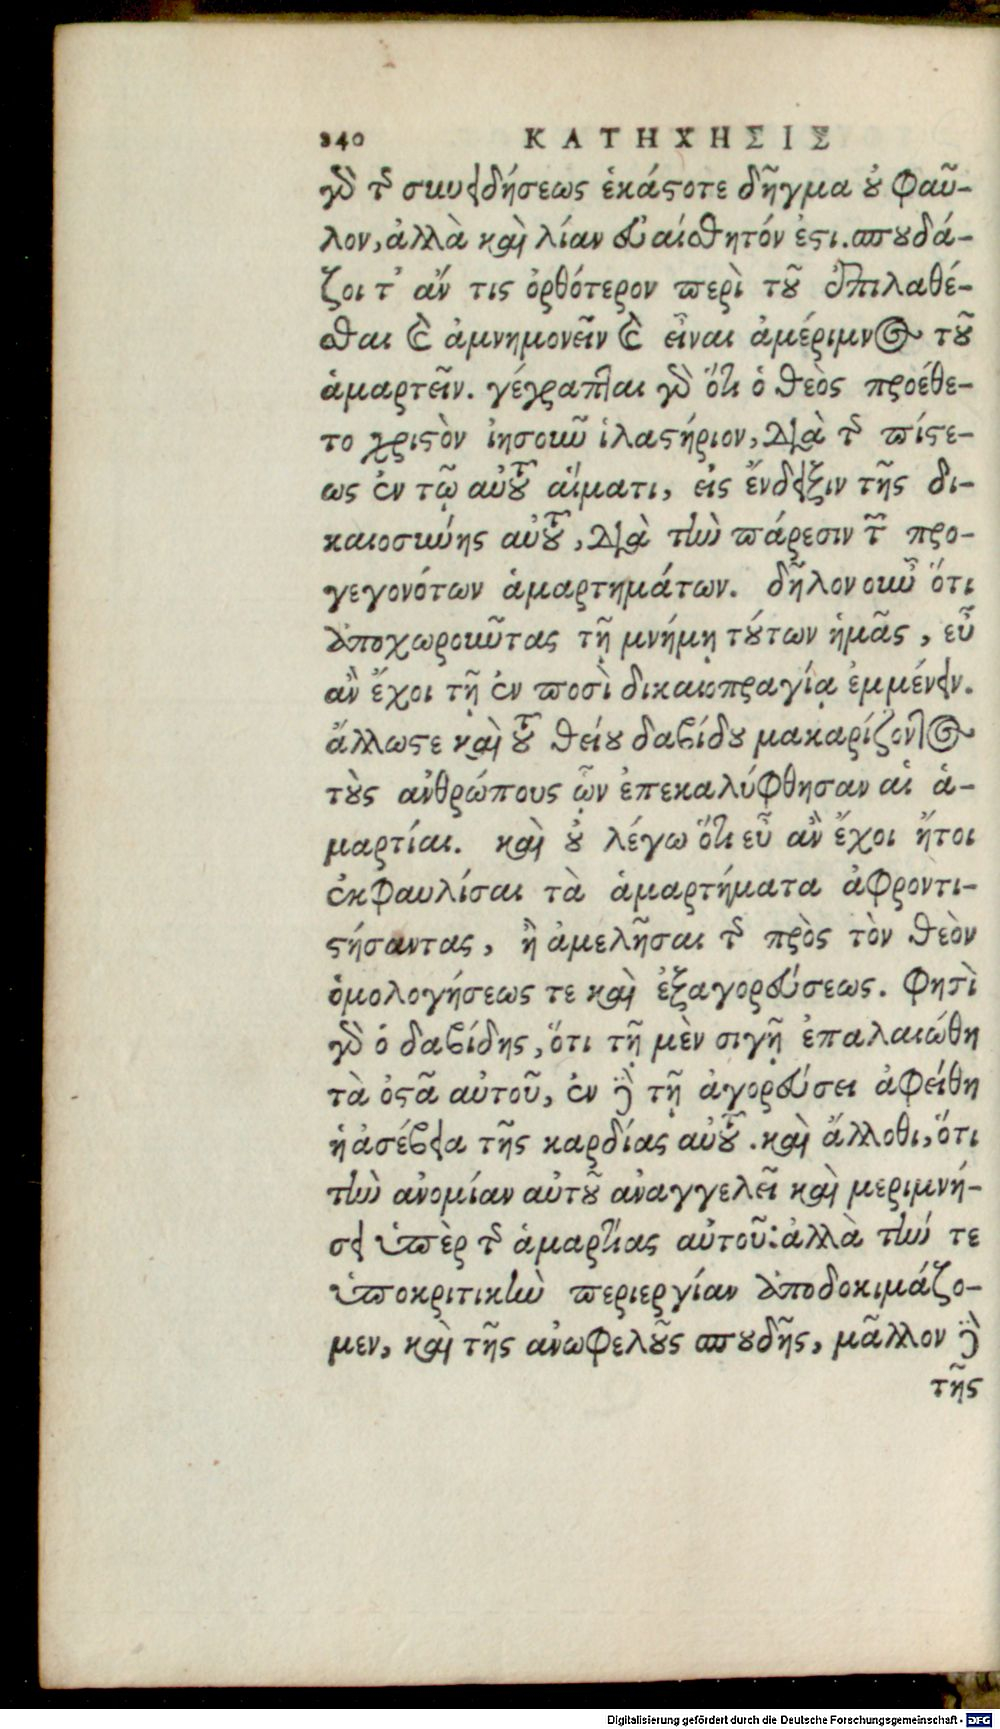 240 ΚΑΤΗΧΗΣΙΣ
γὰρ τῆς συνειδήσεως ἑκάστοτε δῆγμα οὐ φαῦ-
λον, ἀλλὰ καὶ λίαν εὐαίσθητόν ἐστι. σπουδά-
ζοι τ' ἄν τις ὀρθότερον περὶ τοῦ ἐπιλαθέ-
σθαι καὶ ἀμνημονεῖν καὶ εἶναι ἀμέριμνος τοῦ
ἁμαρτεῖν. γέγραπται γὰρ ὅτι ὁ θεὸς προέθε-
το χριστὸν ἰησοῦν ἱλαστήριον, διὰ τῆς πίστε-
ως ἐν τῷ αὐτοῦ αἵματι, εἰς ἔνδειξιν τῆς δι-
καιοσύνης αὐτοῦ, διὰ τὴν πάρεσιν τῶν προ-
γεγονότων ἁμαρτημάτων. δῆλον οὖν ὅτι
ἀποχωροῦντας τῇ μνήμῃ τούτων ἡμᾶς, εὖ
ἂν ἔχοι τῇ ἐν ποσὶ δικαιοπραγίᾳ ἐμμένειν.
ἄλλως τε καὶ τοῦ θείου δαβίδου μακαρίζοντος
τοὺς ἀνθρώπους ὧν ἐπεκαλύφθησαν αἱ ἁ-
μαρτίαι. καὶ οὐ λέγω ὅτι εὖ ἂν ἔχοι ἤτοι
ἐκφαυλίσαι τὰ ἁμαρτήματα ἀφροντι-
στήσαντας, ἢ ἀμελῆσαι τῆς πρὸς τὸν θεὸν
ὁμολογήσεως τε καὶ ἐξαγορεύσεως. φησὶ
γὰρ ὁ δαβίδης, ὅτι τῇ μὲν σιγῇ ἐπαλαιώθη
τὰ ὀστᾶ αὐτοῦ, ἐν δὲ τῇ ἀγορεύσει ἀφείθη
ἡ ἀσέβεια τῆς καρδίας αὐτοῦ. καὶ ἄλλοθι, ὅτι
τὴν ἀνομίαν αὐτοῦ ἀναγγελεῖ καὶ μεριμνή-
σει ὑπὲρ τῆς ἁμαρτίας αὐτοῦ: ἀλλὰ τήν τε
ὑποκριτικὴν περιεργίαν ἀποδοκιμάζο-
μεν, καὶ τῆς ἀνωφελοῦς σπουδῆς, μᾶλλον δὲ
τῆς
Digitalisierung gefördert durch die Deutsche Forschungsgemeinschaft - DFG